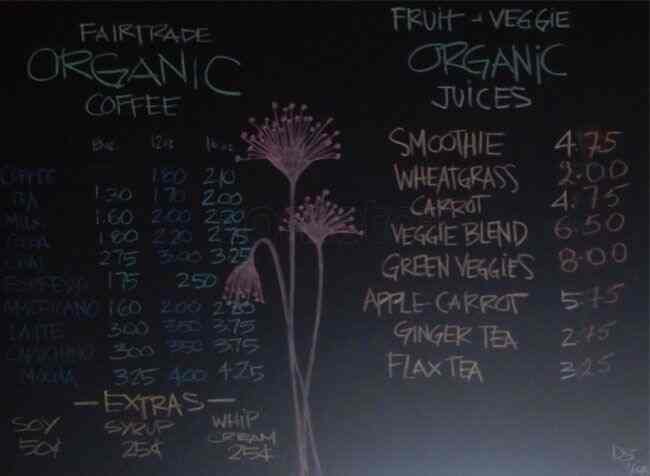 FAIRTRADE
ORGANIC
COFFEE
8oz 12oz 16oz
COFFEE 1.80 2.10
TEA 1.30 1.70 2.00
MILK 1.60 2.00 2.20
1.80 2.20 2.75
CHAI 2.75 3.00 3.25
ESPRESSO 1.75 2.50
AMERICANO 1.60 2.00
LATTE 3.00 3.50 3.75
3.00 3.50 3.75
MOCHA 3.25 4.00 4.25
—EXTRAS—
SOY SYRUP WHIP CREAM
50¢ 25¢ 25¢
FRUIT - VEGGIE
ORGANIC
JUICES
SMOOTHIE 4.75
WHEATGRASS 2.00
CARROT 4.75
VEGGIE BLEND 6.50
GREEN VEGGIES 8.00
APPLE-CARROT 5.75
GINGER TEA 2.75
FLAX TEA 3.25